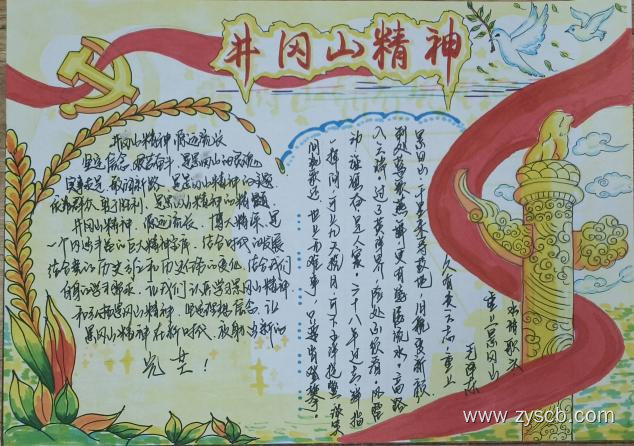 井冈山精神
井冈山精神 源远流长
坚定信念、艰苦奋斗，是井冈山的灵魂
实事求是、敢闯新路，是井冈山精神的
依靠群众、勇于胜利，是井冈山精神的
井冈山精神，源远流长、博大精深，是
一个内涵丰富的巨大精神宝库，结合时代的发展
结合党的历史方位和历史任务的变化，结合我们
自身的学习
井冈山精神在新时代，放射出新的
光芒！
水调歌头
重上井冈山
毛泽东
久有凌云志，重上
井冈山。千里来寻故地，旧貌变新颜。
到处莺歌燕舞，更有潺潺流水，高路
入云端。过了黄洋界，险处不须看。风雷
动，旌旗奋，是人寰。三十八年过去，弹指
一挥间。可上九天揽月，可下五洋捉鳖，谈笑
凯歌还。世上无难事，只要肯登攀。
www.zyscb.com